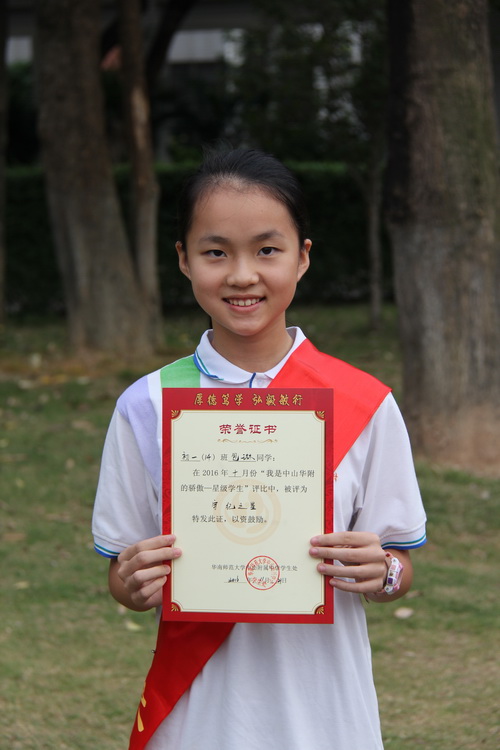 厚德笃学 弘毅敏行
荣誉证书
初一(14)班 同学:
在2016年十月份“我是中山华附
的骄傲—星级学生”评比中,被评为
纪之星
特发此证,以资鼓励。
华南师范大学中山附属中学学生处